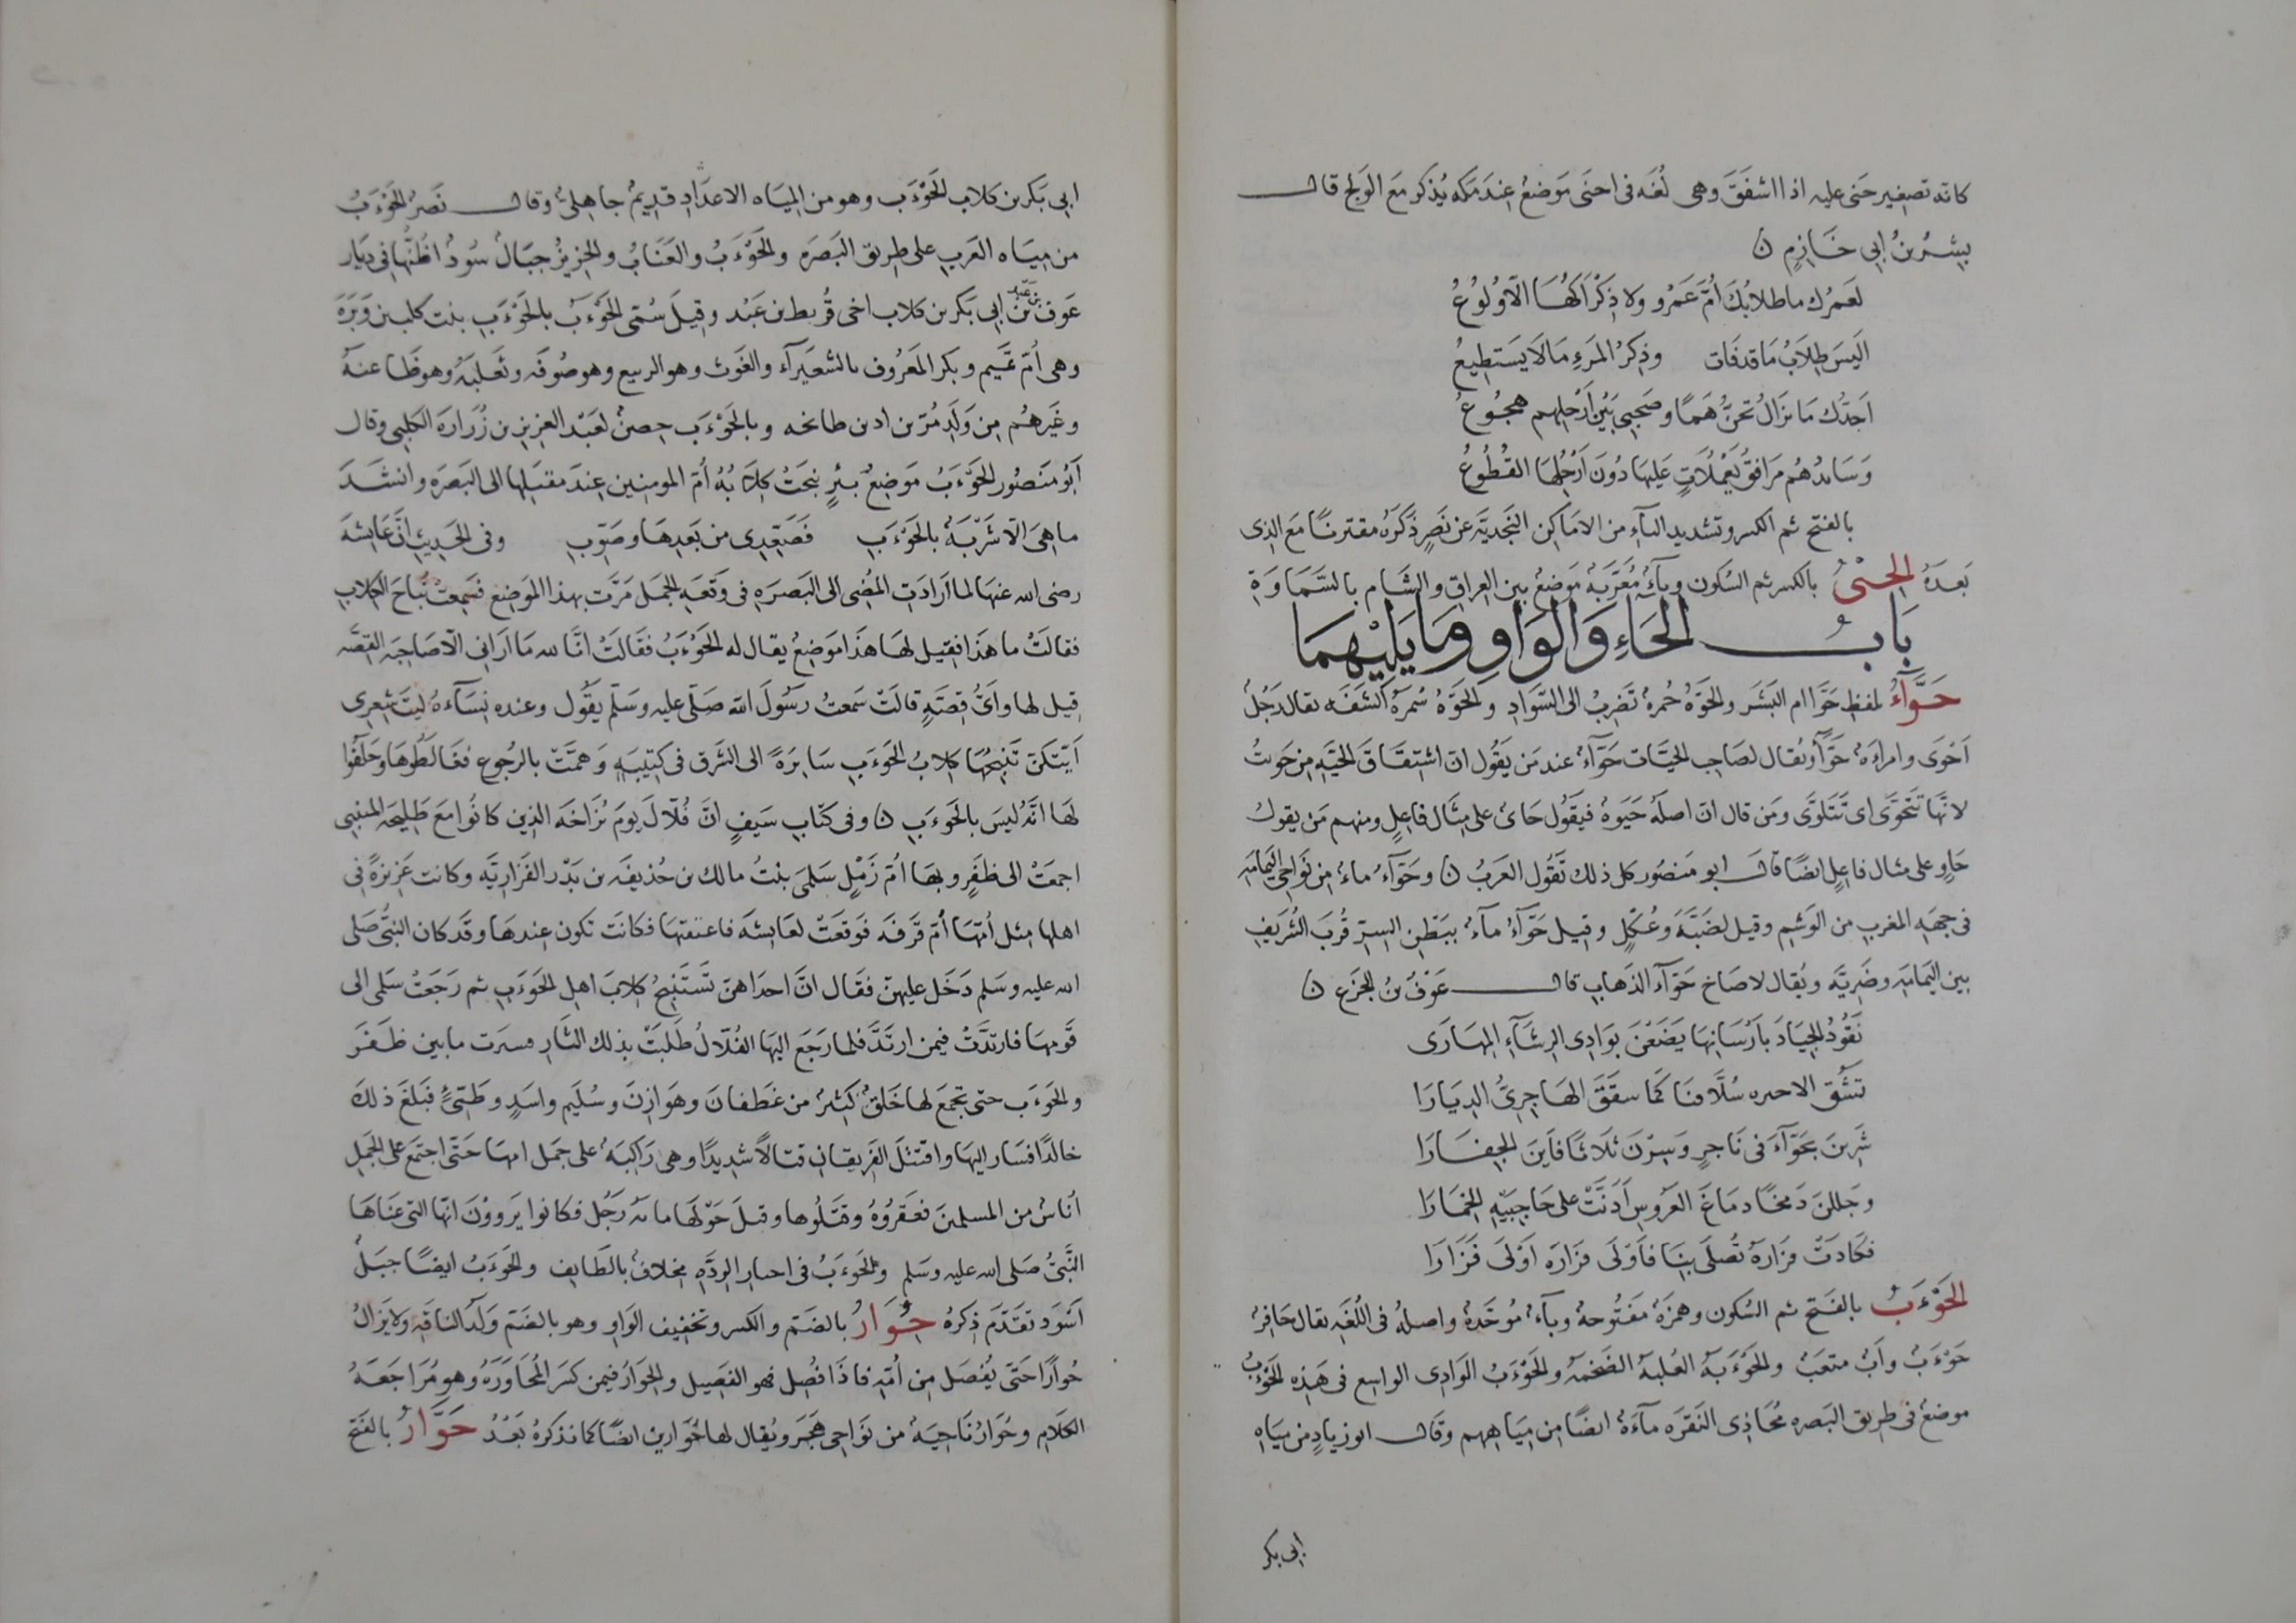 كانه تصغير حنى عليه اذا اشفق وهى لغه فى احنى موضع عند مكه يذكر مع الولج قال
بشر بن ابى خازم ن
لعمرك ما طلابك ام عمرو ولا ذكراكها الا ولوع
اليس طلاب ما قد فات وذكر المرء ما لا يستطيع
اجدك ما نزال تحن هما وصحبى بين ارحلهم هجوع
وسائدهم مرافق يعملات عليها دون ارحلها القطوع
بالفتح ثم الكسر وتشديد الياء من الاماكن النجدية عن نصر ذكره مقترنا مع الذى
بعده الحنى بالكسر ثم السكون وياء معربة موضع بين العراق والشام بالسماوة
باب الحاء والواو وما يليهما
حواء بلفظ حوا ام البشر والحوة حمرة تضرب الى السواد والحوة سمرة الشفه يقال رجل
احوى وامراءة حوا ويقال لصاحب الحيات حواء عند من يقول ان اشتقاق الحيه من حويت
لانها تتحوى اى تتلوى ومن قال ان اصله حيوة فيقول حاى على مثال فاعل ومنهم من يقول
حاو على مثال فاعل ايضا قال ابو منصور كل ذلك تقول العرب ن وحواء ماء من نواحى اليمامه
فى جهه المغرب من الوشم وقيل لضبة وعكل وقيل حواء ماء ببطن السر قرب الشريف
بين اليمامه وضرية ويقال لاضاخ حواء الذهاب قال عوف بن الجزع ن
نقود الجياد بارسانها يضعن بوادى الرشاء المهارى
تشق الاحره سلافنا كما شقق الهاجرى الديارا
شربن بحواء فى ناجر وسرن ثلاثا فاين الجفارا
وجللن دمخا دماغ العروس ادنت على حاجبيه الخمارا
فكادت فزارة تصلى بنا فاولى فزاره اولى فزارا
الحوءب بالفتح ثم السكون وهمزة مفتوحة وباء موحدة واصله فى اللغه يقال حافر
حوءب واب متعب والحوءبة العلبة الضخمه والحوءب الوادى الواسع فى هذه الحوءب
موضع فى طريق البصره محاذى النقره ماءة ايضا من مياههم وقال ابو زياد من مياه
ابى بكر
ابى بكر بن كلاب الحوءب وهو من المياه الاعداد قديم جاهلى وقال نصر الحوءب
من مياه العرب على طريق البصره والحوءب والعناب والحزيز جبال سود اظنها فى ديار
عوف بن عبد بن ابى بكر بن كلاب اخى قريط بن عبد وقيل سمى الحوءب بالحوءب بنت كلب بن وبرة
وهى ام تميم وبكر المعروف بالشعيراء والغوث وهو الربيع وهو صوفه وثعلبه وهو ظاعنة
وغيرهم من ولد مر بن اد بن طابخه وبالحوءب حصن لعبد العزيز بن زرارة الكلبى وقال
ابو منصور الحوءب موضع بئر نبحت كلابه ام المومنين عند مقبلها الى البصره وانشد
ما هى الا شربة بالحوءب فصعدى من بعدها وصوبى وفى الحديث ان عايشة
رضى الله عنها لما ارادت المضى الى البصره فى وقعه الجمل مرت بهذا الموضع فسمعت نباح الكلاب
فقالت ما هذا فقيل لها هذا موضع يقال له الحوءب فقالت انا لله ما ارانى الا صاحبة القصه
قيل لها واى قصة قالت سمعت رسول الله صلى عليه وسلم يقول وعنده نساءه ليت شعرى
ايتكن تنبحها كلاب الحوءب سايرة الى الشرق فى كتيبه وهمت بالرجوع فغالطوها وحلفوا
لها انه ليس بالحوءب ن وفى كتاب سيف ان فلال يوم بزاخه الذين كانوا مع طليحه المتنبى
اجمعت الى ظفر وبها ام زمل سلمى بنت مالك بن حذيفه بن بدر الفزارية وكانت عزيزة فى
اهلها مثل امها ام قرفه فوقعت لعايشه فاعتقتها فكانت تكون عندها وقد كان النبى صلى
الله عليه وسلم دخل عليهن فقال ان احداهن تستنبح كلاب اهل الحوءب ثم رجعت سلمى الى
قومها فارتدت فيمن ارتد فلما رجع اليها الفلال طلبت بذلك الثار فسرت ما بين ظفر
والحوءب حتى تجمع لها خلق كثير من غطفان وهوازن وسليم واسد وطيئ فبلغ ذلك
خالدا فسار اليها واقتتل الفريقان قتالا شديدا وهى راكبة على جمل امها حتى اجتمع على الجمل
اناس من المسلمين فعقروه وقتلوها وقتل حولها مائه رجل فكانوا يروون انها التى عناها
النبى صلى الله عليه وسلم والحوءب فى اخبار الردة مخلاف بالطايف والحوءب ايضا جبل
اسود تقدم ذكره حوار بالضم والكسر وتخفيف الواو وهو بالضم ولد الناقه ولا يزال
حوارا حتى يفصل من امه فاذا فصل فهو الفصيل والحوار فيمن كسر المحاورة وهو مراجعة
الكلام وحوار ناحية من نواحى هجر ويقال لها حوارين ايضا كما نذكره بعد حوار بالفتح